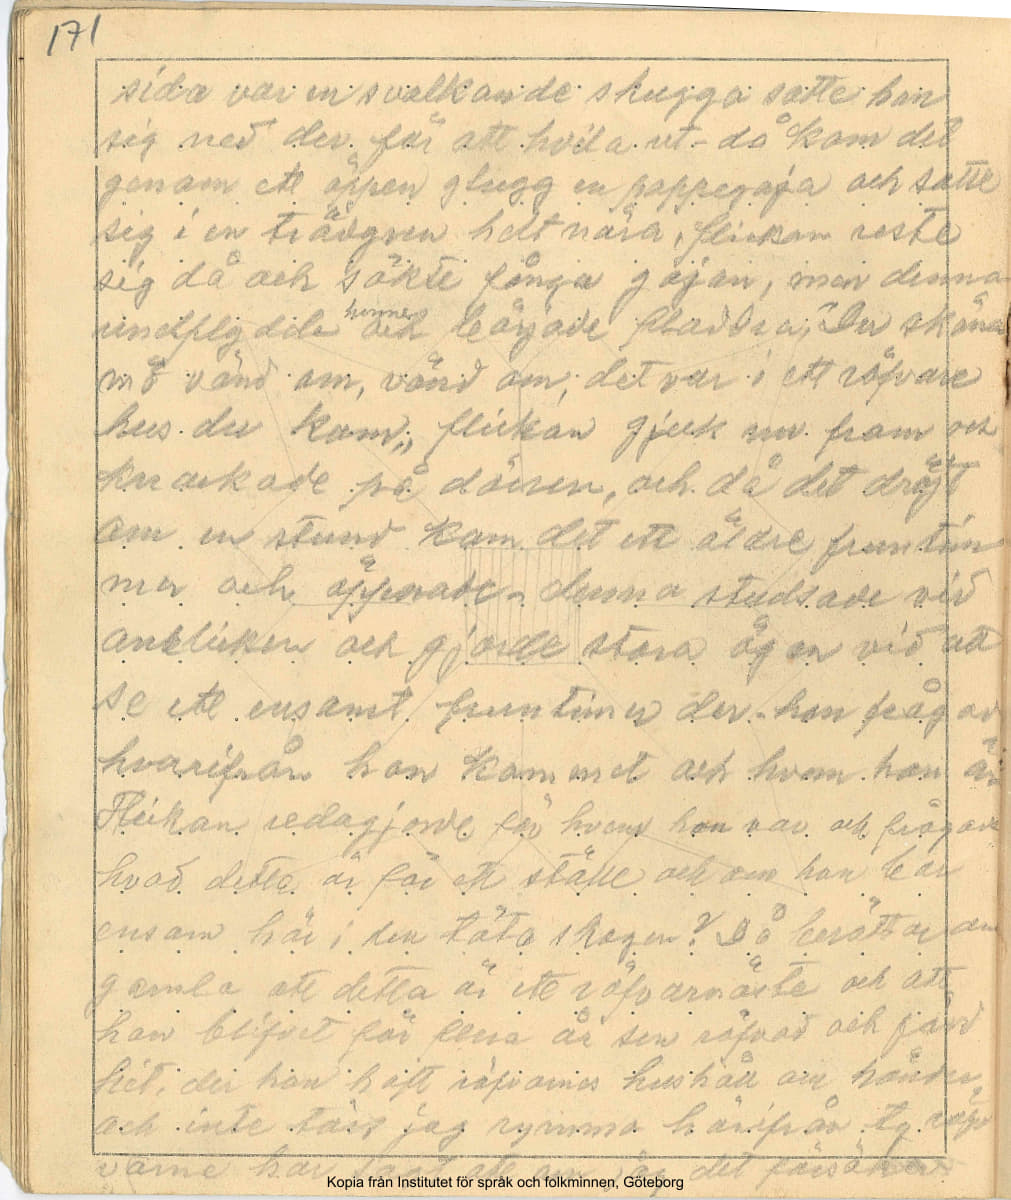 171
sida var en svalkande skugga satte hon
sig ned der för att hvila ut – då kom det
genom ett öppen glugg en pappegoja och satte
sig i en trädgren helt nära, flickan reste
sig då och sökte fånga gojan, men denna
undflydde henne och började sladdra, "Du sköna
mö vänd om, vänd om, det var i ett röfvare
hus du kom„ flickan gick nu fram och
knackade på dörren, och då det dröjt
om en stund kom det ett äldre fruntim
mer och öppnade – denna studsade vid
anblicken och gjorde stora ögon vid att
se ett ensamt fruntimer der – hon frågade
hvarifrån hon kommet och hvem hon är
Flickan redagjorde för hvem hon var och frågade
hvad detta är för ett ställe och om hon bor
ensam här i den täta skogen? Då berättar den
gamla att detta är ett röfvarnäste och att
hon blifvet för flera år sen röfvad och förd
hit, der hon haft röfvarnes hushåll om händer
och inte törs jag rymma härifrån ty röfv
varne har sagt att om jag det försöker
Kopia från Institutet för språk och folkminnen, Göteborg